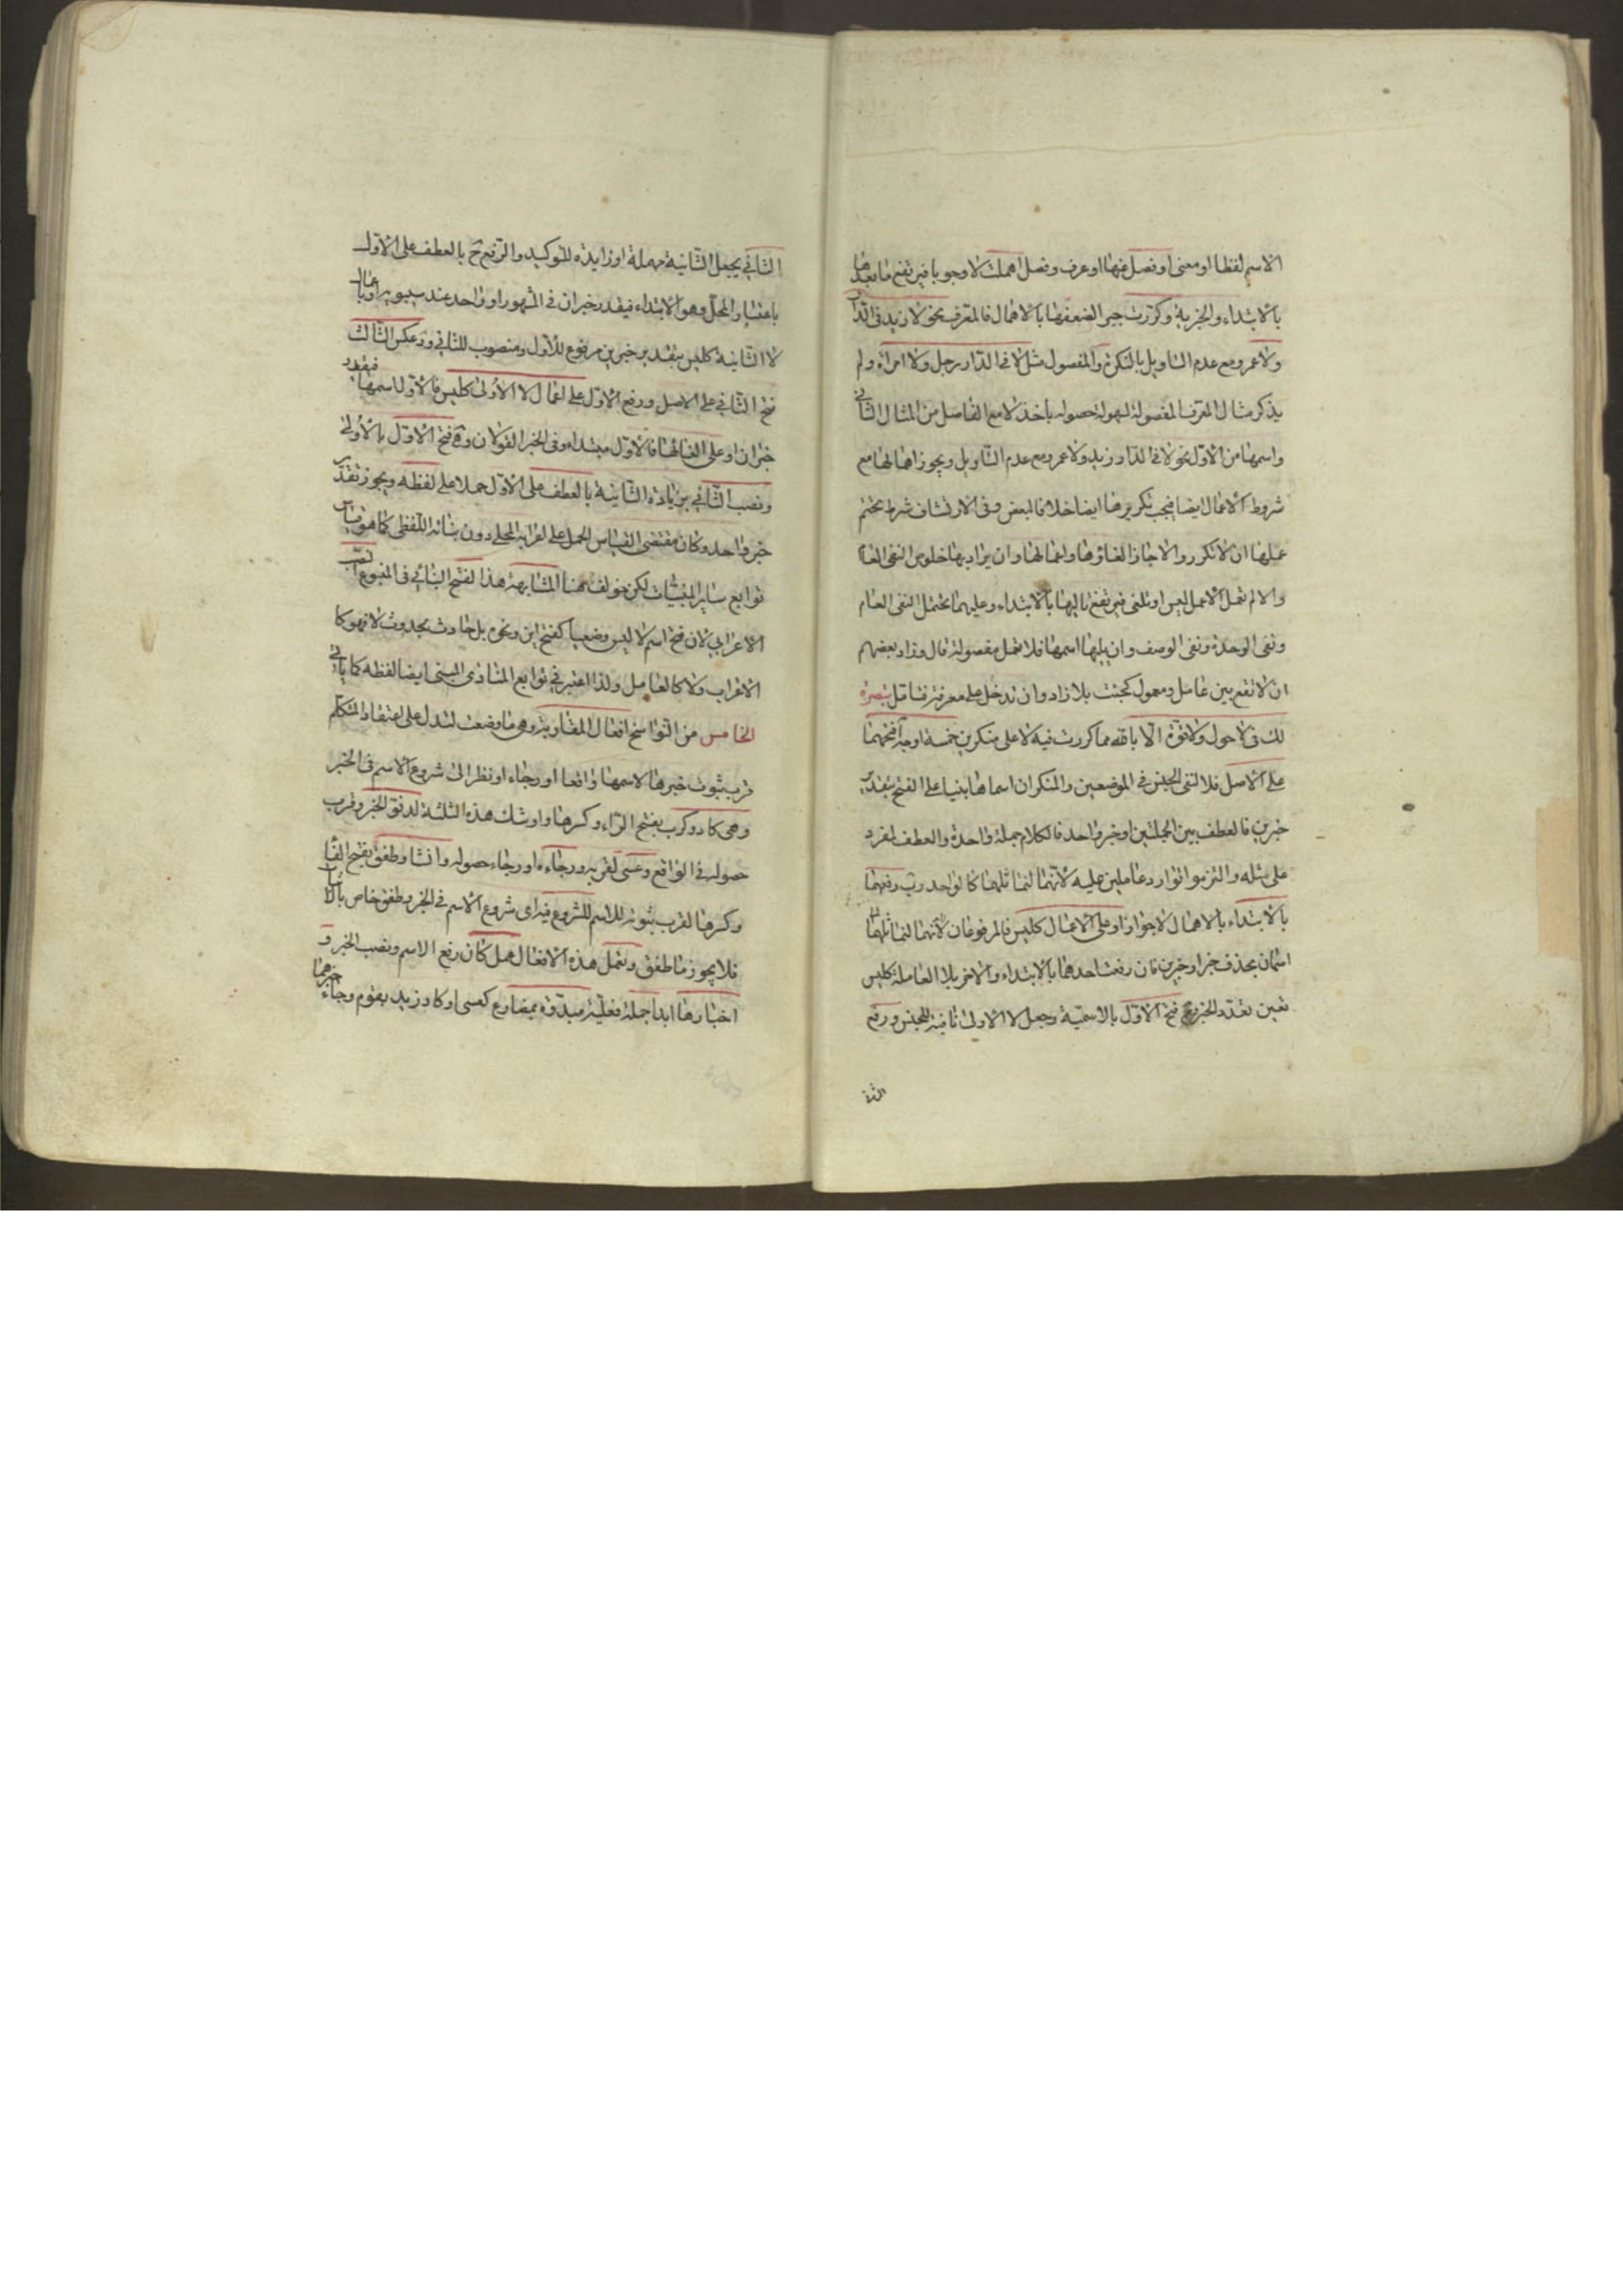 الاسم لفظا او معنى او فصل عنها او عرف وفصل اهملت لا وجوبا فيرتفع ما بعدها
بالابتداء والخبرية وكررت جبرا لضعفها بالاهمال فالمعرف نحو لا زيد في الدار
ولا عمرو مع عدم التاويل بالنكرة والمفصول مثل لا في الدار رجل ولا امراة ولم
يذكر مثال المعرف المفصول لسهولة حصوله باخذ لا مع الفاصل من المثال الثاني
واسمها من الاول نحو لا في الدار زيد ولا عمرو مع عدم التاويل ويجوز اهمالها مع
شروط الاعمال ايضا فيجب تكريرها ايضا خلافا لبعض وفي الارتشاف شرط تحتم
عملها ان لا تكرر والا جاز الغاؤها واعمالها وان يراد بها خلوص النفي العام
والا لم تعمل الا عمل ليس او تلغى فيرتفع تاليها بالابتداء وعليهما تحتمل النفي العام
ونفي الوحدة ونفي الوصف وان يليها اسمها فلا تعمل مفصولة قال وزاد بعضهم
ان لا تقع بين عامل ومعمول كجئت بلا زاد وان تدخل على معرفة فتامل تبصرة
لك في لا حول ولا قوة الا بالله مما كررت فيه لا على منكرين خمسة اوجه آ فتحهما
على الاصل فلا لنفي الجنس في الموضعين والمنكران اسماها بنيا على الفتح بتقدير
خبرين فالعطف بين الجملتين او خبر واحد فالكلام جملة واحدة والعطف لمفرد
على مثله والتزموا توارد عاملين عليه لانهما لتماثلهما كالواحد ب رفعهما
بالابتداء بالاهمال لا جوازا وعلى الاعمال كليس فالمرفوعان لانهما لتماثلهما
اسمان بحذف خبر او خبرين فان رفعت احدهما بالابتداء والاخر بلا العاملة كليس
تعين تعدد الخبر ج فتح الاول بالاسمية وجعل لا الاولى نافية للجنس ورفع
الثاني
الثاني بجعل الثانية مهملة او زايدة للتوكيد والرفع ح بالعطف على الاول
باعتبار المحل وهو الابتداء فيقدر خبران في المشهور او واحد عند سيبويه او باعمال
لا الثانية كليس بتقدير خبرين مرفوع للاول ومنصوب للثاني ود عكس الثالث
فتح الثاني على الاصل ورفع الاول على اعمال لا الاولى كليس فالاول اسمها فيقدر
خبران او على الغائها فالاول مبتدا وفي الخبر القولان وه فتح الاول بالاولى
ونصب الثاني بزيادة الثانية بالعطف على الاول حملا على لفظه ويجوز تقدير
خبر واحد وكان مقتضى القياس الحمل على اعرابه المحلي دون بنائه اللفظي كما هو قياس
توابع ساير المبنيات لكن خولف هنا لمشابهة هذا لفتح البنائي في المتبوع النصب
الاعرابي لان فتح اسم لا ليس وضعيا كفتح اين ونحوه بل حادث بحدوث لا فهو كا
لاعراب ولا كالعامل ولذا اعتبر في توابع المنادى المبني ايضا لفظه كما ياتي
الخامس من النواسخ افعال المقاربة وهي ما وضعت لتدل على اعتقاد المتكلم
قرب ثبوت خبرها لاسمها واقعا او رجاء او نظرا الى شروع الاسم في الخبر
وهي كاد وكرب بفتح الراء وكسرها واوشك هذه الثلثة لدنو الخبر وقرب
حصوله في الواقع وعسى لقربه ورجاءه او رجاء حصوله وانشا وطفق بفتح الفاء
وكسرها لقرب ثبوته للاسم للشروع فيه اى شروع الاسم في الخبر وطفق خاص بالاثبات
فلا يجوز ما طفق وتعمل هذه الافعال عمل كان رفع الاسم ونصب الخبر و
اخبارها ابدا جملة فعلية مبدوة بمضارع كعسى او كاد زيد يقوم وجاء خبرهما